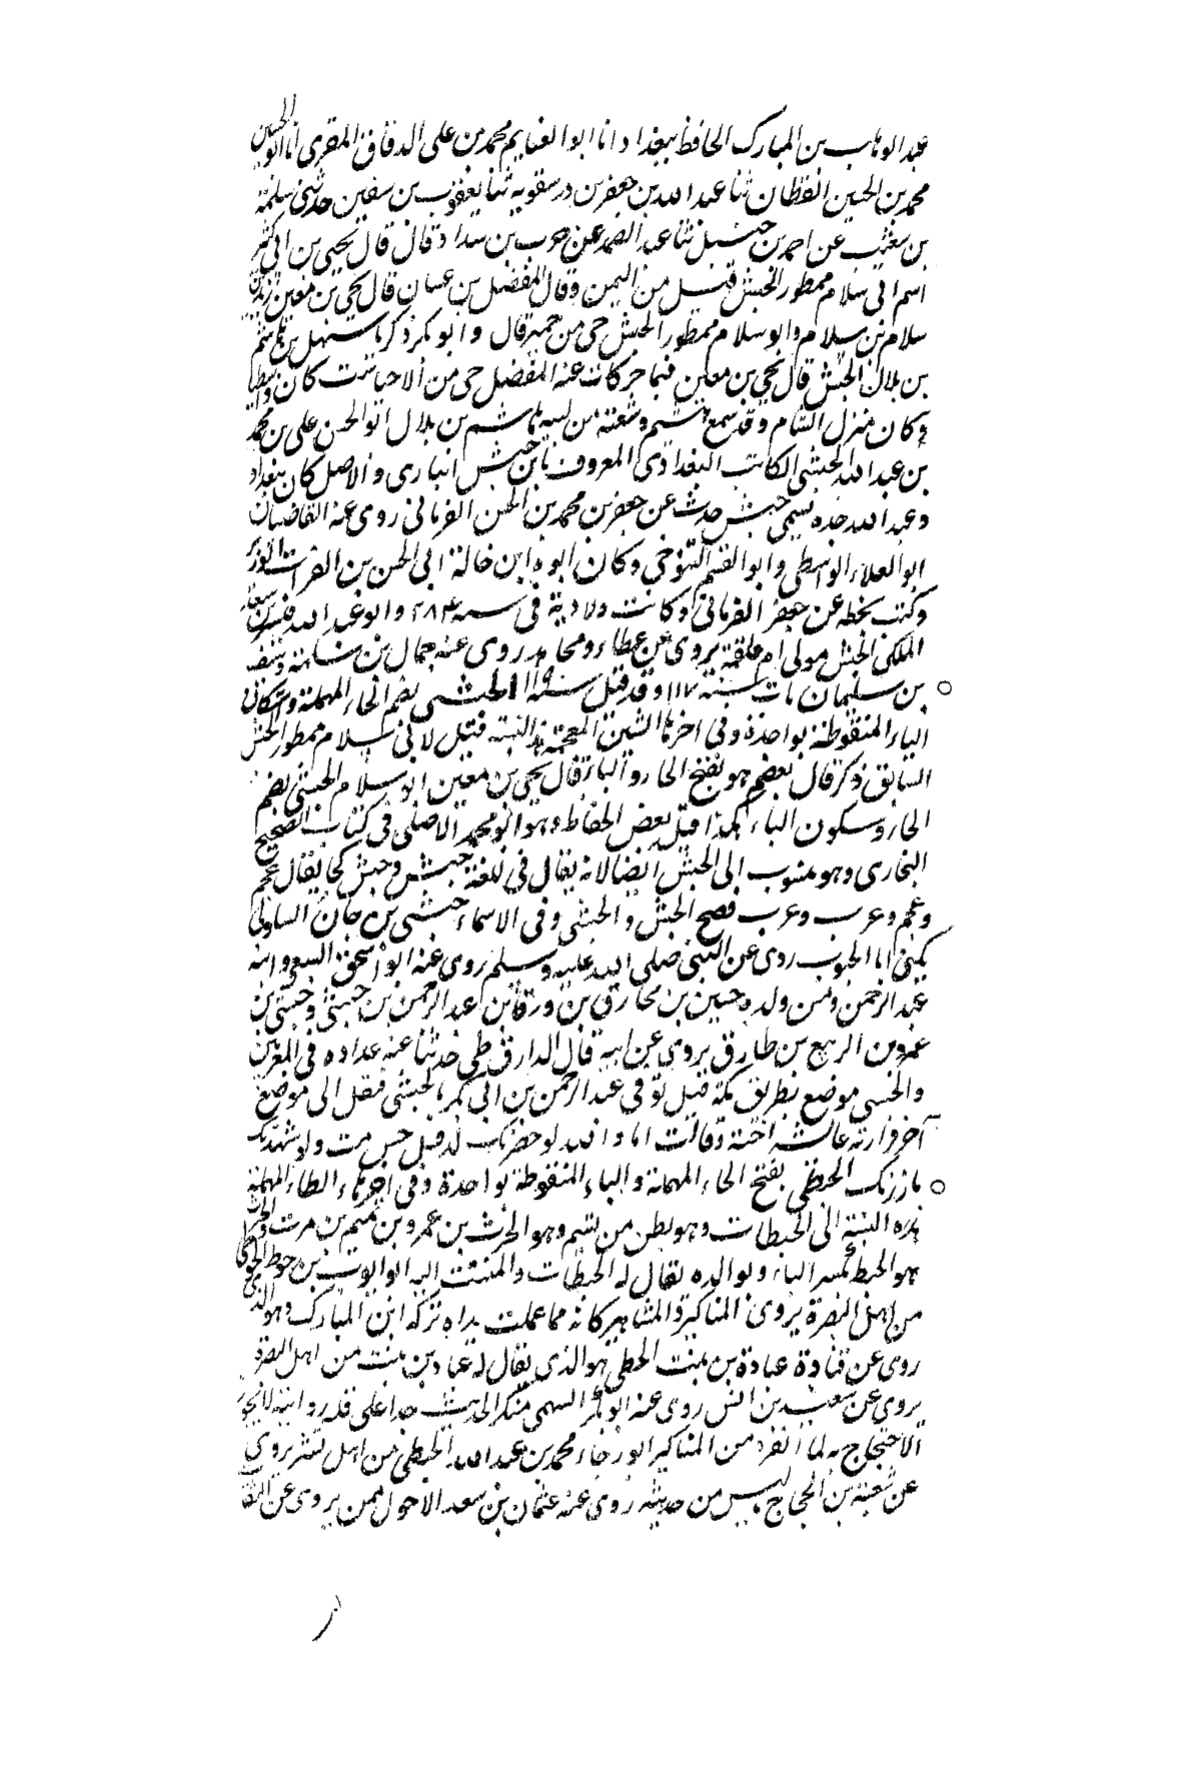 عبد الوهاب بن المبارك الحافظ ببغداد انا ابو الغنايم محمد بن على الدقاق المقرى انا ابو الحسين
محمد بن الحسين القطان ثنا عبد الله بن جعفر بن درستويه ثنا يعقوب بن سفين حدثنى سلمة
بن شبيب عن احمد بن حنبل ثنا عبد الصمد عن حرب بن شداد قال قال يحيى بن ابى كثير
اسم ابى سلام ممطور الحبشى قبيل من اليمن وقال المفضل بن غسان قال يحيى بن معين زيد بن
سلام بن سلام وابو سلام ممطور الحبشى حى من حمير قال وابو بكر ذكريا سهل بن هاشم
بن بلال الحبشى قال يحيى بن معين فيما حركات عنه المفضل حى من كان
وكان منزل الشام وقد سمع هشيم وشعبة من ابيه هاشم بن بلال ابو الحسن على بن محمد
بن عبد الله الحبشى الكاتب البغدادى المعروف بابن حبش انبارى والاصل كان ببغداد
وعبد الله جده يسمى حبش حدث عن جعفر بن محمد بن الحسن الفريابى روى عنه القاضيان
ابو العلاء الواسطى وابو القسم التنوخى وكان ابوه ابن خالة ابى الحسن بن الفرات الوزير
وكتب بخطه عن جعفر الفريابى وكانت ولادته فى سنة ٢٨٤ وابو عبد الله قيس بن سعد
المكى الحبشى مولى ام علقمة يروى عن عطاء ومجاهد روى عنه حماد بن سلمة وسيف
بن سليمان مات سنة ١١٧ وقد قيل سنة ١١٩ الحبشى بضم الحاء المهملة واسكان
الباء المنقوطة بواحدة وفى اخرها الشين المعجمة هذه النسبة قيل لابى سلام ممطور الحبشى
السابق ذكره قال بعضهم هو بفتح الحاء والباء وقال يحيى بن معين ابو سلام الحبشى بضم
الحاء وسكون الباء هكذا قيل بعض الحفاظ وهو ابو محمد الاصلى فى كتاب الصحيح
البخارى وهو منسوب الى الحبش ايضا لانه يقال فى اللغة حبش وحبش كما يقال عجم
وعجم وعرب وعرب فصح الحبش والحبشى وفى الاسماء حبشى بن جنادة السلولى
يكنى ابا الجنوب روى عن النبى صلى الله عليه وسلم روى عنه ابو اسحق السبيعى وابنه
عبد الرحمن ومن ولده حصين بن مخارق بن ورقا بن عبد الرحمن بن حبشى وحبشى بن
عمرو بن الربيع بن طارق يروى عن ابيه قال الدارقطنى حدثنا عنه عداده فى المصريين
والحبشى موضع بطريق مكة قيل توفى عبد الرحمن بن ابى بكر بالحبشى فنقل الى موضع
آخر فزارته عائشة اخته وقالت اما والله لو حضرتك لدفنت حيث مت ولو شهدتك
ما زرتك الحبطى بفتح الحاء المهملة والباء المنقوطة بواحدة وفى اخرها الطاء المهملة
هذه النسبة الى الحبطات وهو بطن من تميم وهو الحرث بن عمرو بن تميم بن مرت والحرث
هو الحبط بكسر الباء وولده يقال له الحبطات والمنتسب اليه ابو ايوب بن خوط الحبطى
من اهل البصرة يروى المناكير المشاهير كانه مما عملت يداه تركه ابن المبارك وهو الذى
روى عن قتادة عبادة بن بنت الحبطى هو الذى يقال له عباد بن بنت من اهل البصرة
يروى عن شعيب بن انس روى عنه ابو بكر السهمى منكر الحديث جدا على قلة روايته لا يجوز
الاحتجاج به لما انفرد من المناكير ابو رجاء محمد بن عبد الله الحبطى من اهل تستر يروى
عن شعبة بن الحجاج ليس من حديثه روى عنه عثمان بن سعد الاحول ممن يروى عن